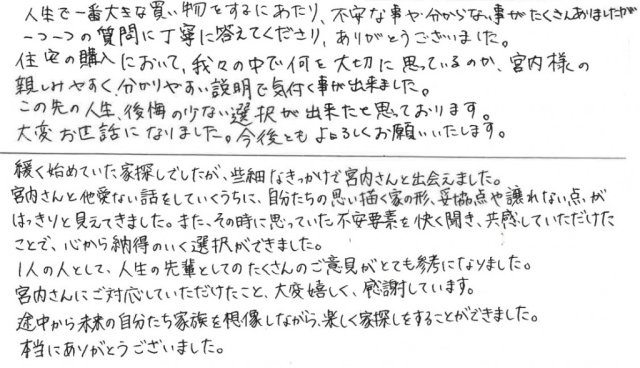 人生で一番大きな買い物をするにあたり、不安な事や分からない事がたくさんありましたが
一つ一つの質問に丁寧に答えてくださり、ありがとうございました。
住宅の購入において、我々の中で何を大切に思っているのか、宮内様の
親しみやすく、分かりやすい説明で気付く事が出来ました。
この先の人生、後悔の少ない選択が出来たと思っております。
大変お世話になりました。今後ともよろしくお願いいたします。
緩く始めていた家探しでしたが、些細なきっかけで宮内さんと出会えました。
宮内さんと他愛ない話をしていくうちに、自分たちの思い描く家の形、妥協点や譲れない点が
はっきりと見えてきました。また、その時に思っていた不安要素を快く聞き、共感していただけた
ことで、心から納得のいく選択ができました。
1人の人として、人生の先輩としてのたくさんのご意見がとても参考になりました。
宮内さんにご対応していただけたこと、大変嬉しく、感謝しています。
途中から未来の自分たち家族を想像しながら、楽しく家探しをすることができました。
本当にありがとうございました。